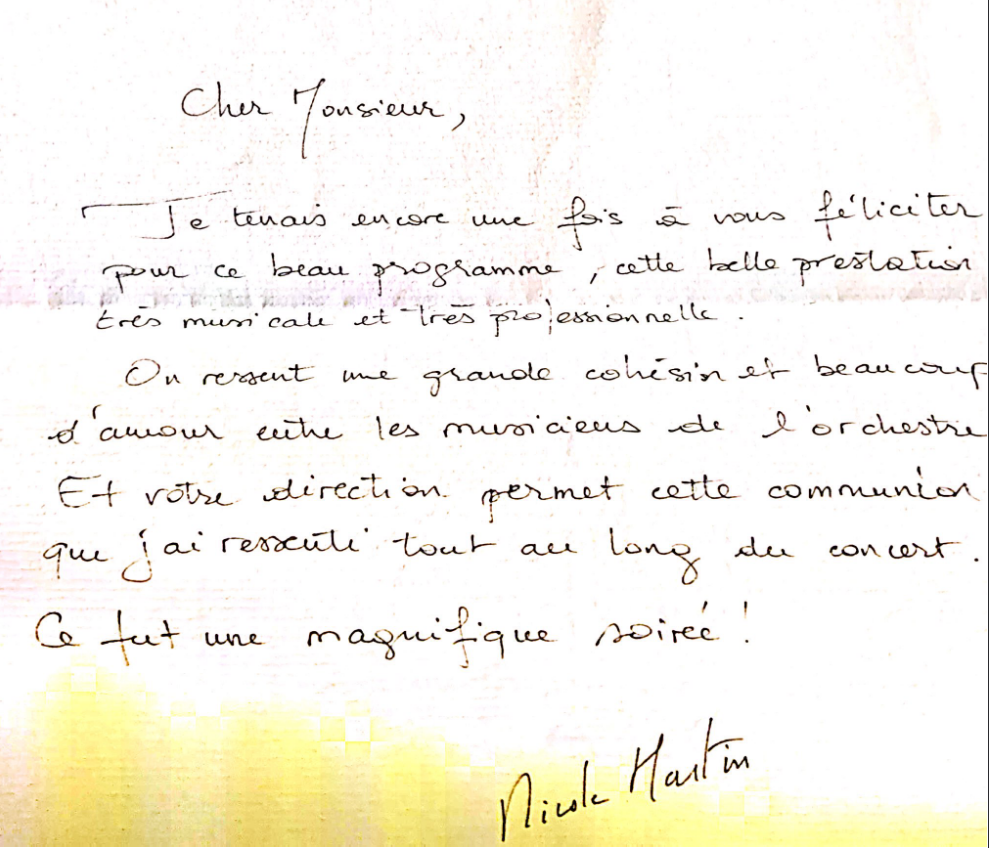 Cher Monsieur,
Je tenais encore une fois à vous féliciter
pour ce beau programme, cette belle prestation
très musicale et très professionnelle.
On ressent une grande cohésion et beaucoup
d'amour entre les musiciens de l'orchestre
Et votre direction permet cette communion
que j'ai ressenti tout au long du concert.
Ce fut une magnifique soirée !
Nicole Martin